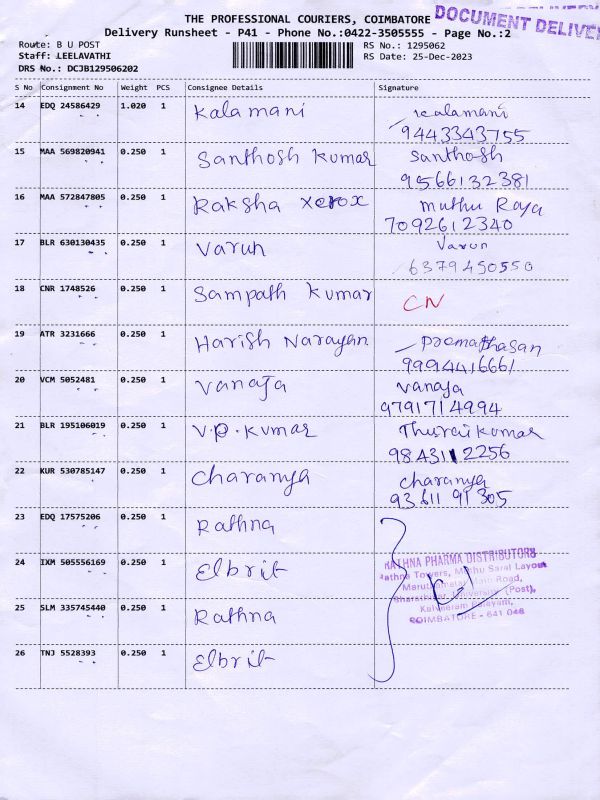 THE PROFESSIONAL COURIERS, COIMBATORE
DOCUMENT DELIVE
Delivery Runsheet - P41 - Phone No.:0422-3505555 - Page No.:2
Route: B U POST
RS No.: 1295062
Staff: LEELAVATHI
RS Date: 25-Dec-2023
DRS No.: DCJB129506202
S No Consignment No Weight PCS Consignee Details Signature
14 EDQ 24586429 1.020 1 Kalamani Kalamani
9443343755
15 MAA 569820941 0.250 1 Santhosh Kumar Santhosh
9566132381
16 MAA 572847805 0.250 1 Raksha Xerox Muthu Raya
7092612340
17 BLR 630130435 0.250 1 Varun Varun
6379450550
18 CNR 1748526 0.250 1 Sampath Kumar CN
19 ATR 3231666 0.250 1 Harish Narayan Premathasan
9994416661
20 VCM 5052481 0.250 1 Vanaja Vanaja
9791714994
21 BLR 195106019 0.250 1 V.P.Kumar Thuraikumar
9843112256
22 KUR 530785147 0.250 1 Charanya Charanya
9361191305
23 EDQ 17575206 0.250 1 Rathna
24 IXM 505556169 0.250 1 Elbrit
RATHNA PHARMA DISTRIBUTORS
Rathna Towers, Muthu Saral Layout
Maruthamalai Main Road,
Bharathiyar University (Post),
25 SLM 335745440 0.250 1 Rathna
Kalveeram Palayam,
COIMBATORE - 641 046
26 TNJ 5528393 0.250 1 Elbrit